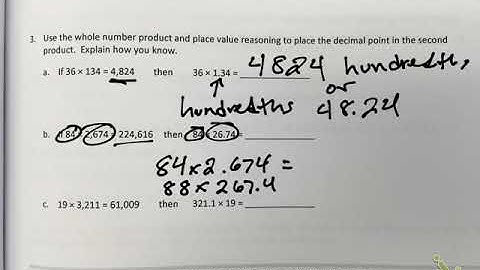 3. Use the whole number product and place value reasoning to place the decimal point in the second
product. Explain how you know.
a. If 36 × 134 = 4,824 then 36 × 1.34 = 4824 hundredths
or
hundredths 48.24
b. If 84 × 2,674 = 224,616 then .84 × 26.74 =
84 × 2.674 =
88 × 267.4
c. 19 × 3,211 = 61,009 then 321.1 × 19 =